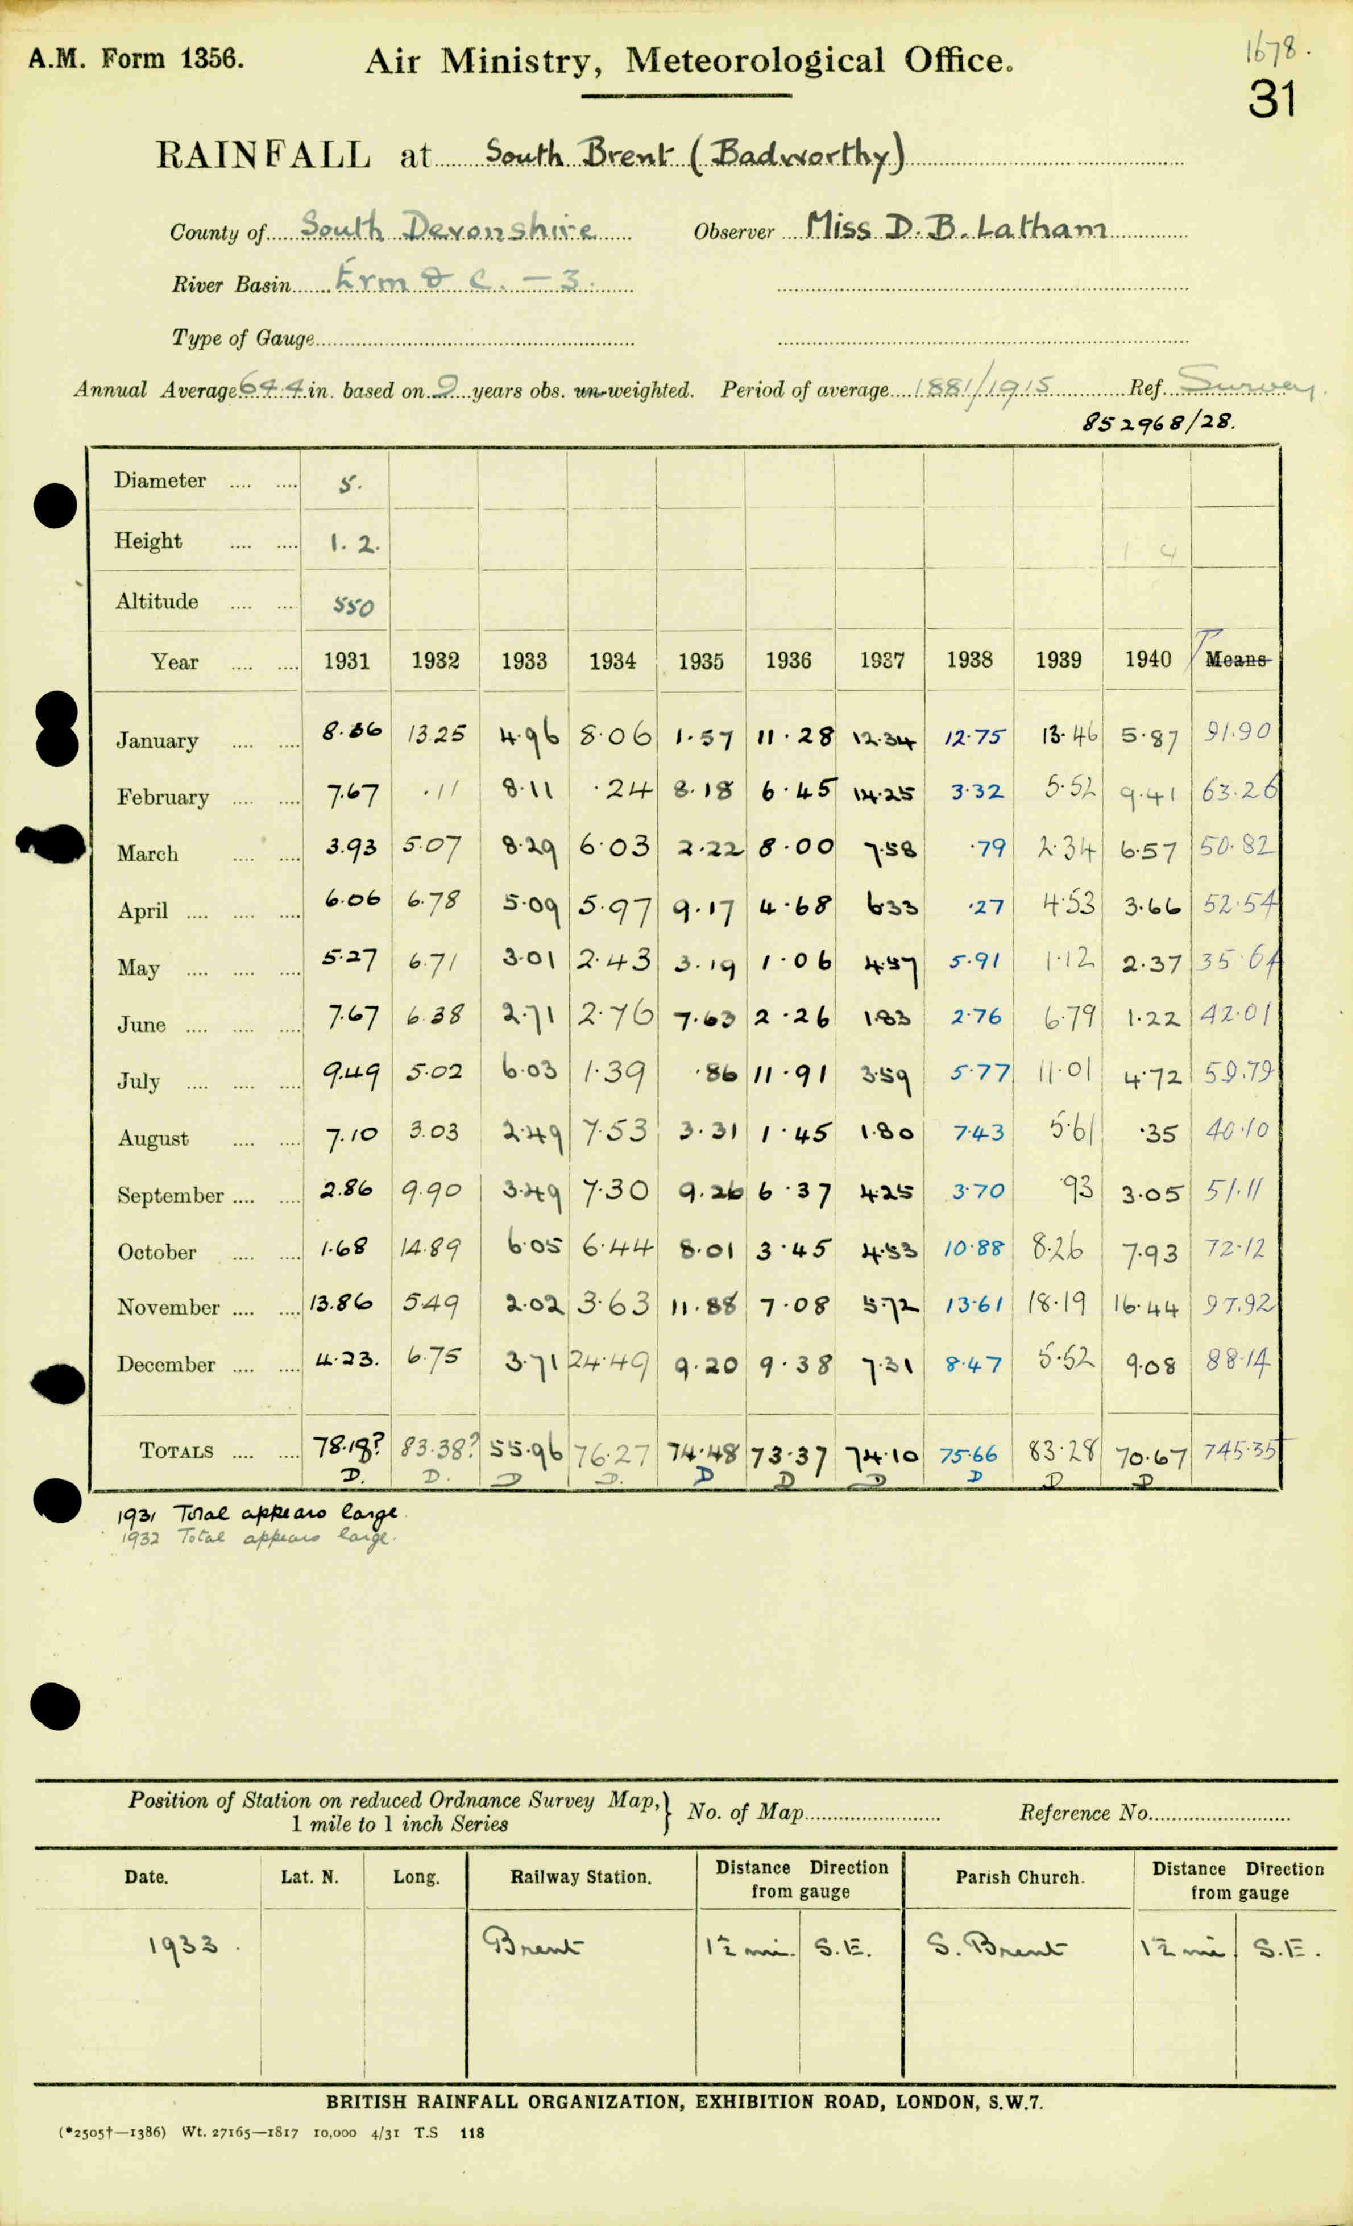 A.M. Form 1356. Air Ministry, Meteorological Office. 1678.
31
RAINFALL at South Brent (Badworthy)
County of South Devonshire Observer Miss D. B. Latham
River Basin Erm & C. — 3.
Type of Gauge
Annual Average 64.4 in. based on 9 years obs. un-weighted. Period of average 1881/1915 Ref. Survey.
852968/28.
Diameter .... .... 5.
Height .... .... 1. 2. 1 4
Altitude .... .... 550
Year .... .... 1931 1932 1933 1934 1935 1936 1937 1938 1939 1940 T Means
January .... .... 8.36 13.25 4.96 8.06 1.57 11.28 12.34 12.75 13.46 5.87 91.90
February .... .... 7.67 .11 8.11 .24 8.18 6.45 14.25 3.32 5.52 9.41 63.26
March .... .... 3.93 5.07 8.29 6.03 2.22 8.00 7.58 .79 2.34 6.57 50.82
April .... .... .... 6.06 6.78 5.09 5.97 9.17 4.68 6.33 .27 4.53 3.66 52.54
May .... .... .... 5.27 6.71 3.01 2.43 3.19 1.06 4.57 5.91 1.12 2.37 35.64
June .... .... .... 7.67 6.38 2.71 2.76 7.63 2.26 1.83 2.76 6.79 1.22 42.01
July .... .... .... 9.49 5.02 6.03 1.39 .86 11.91 3.59 5.77 11.01 4.72 59.79
August .... .... 7.10 3.03 2.49 7.53 3.31 1.45 1.80 7.43 5.61 .35 40.10
September .... .... 2.86 9.90 3.49 7.30 9.26 6.37 4.25 3.70 .93 3.05 51.11
October .... .... 1.68 14.89 6.05 6.44 8.01 3.45 4.53 10.88 8.26 7.93 72.12
November .... .... 13.86 5.49 2.02 3.63 11.88 7.08 5.72 13.61 18.19 16.44 97.92
December .... .... 4.23. 6.75 3.71 24.49 9.20 9.38 7.31 8.47 5.52 9.08 88.14
TOTALS .... .... 78.18? 83.38? 55.96 76.27 74.48 73.37 74.10 75.66 83.28 70.67 745.35
D. D. D D. D D D D D D
1931 Total appears large.
1932 Total appears large.
Position of Station on reduced Ordnance Survey Map,} No. of Map Reference No.
1 mile to 1 inch Series
Date. Lat. N. Long. Railway Station. Distance Direction from gauge Parish Church. Distance Direction from gauge
1933. Brent 1½ mi. S.E. S. Brent 1½ mi S.E.
BRITISH RAINFALL ORGANIZATION, EXHIBITION ROAD, LONDON, S.W.7.
(*2505†—1386) Wt. 27165—1817 10,000 4/31 T.S 118